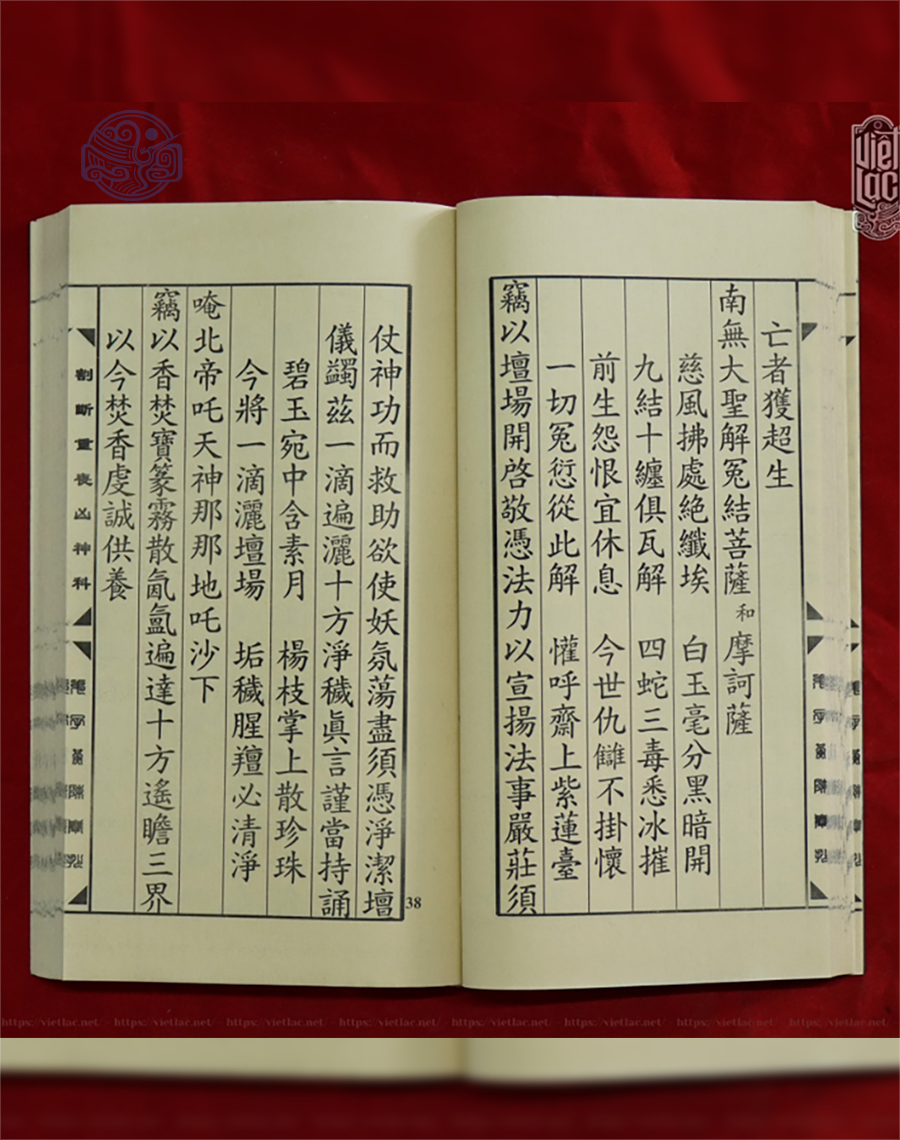 亡者獲超生
南無大聖解冤結菩薩 和 摩訶薩
慈風拂處絕纖埃 白玉毫分黑暗開
九結十纏俱瓦解 四蛇三毒悉冰摧
前生怨恨宜休息 今世仇讎不掛懷
一切冤愆從此解 懽呼齋上紫蓮臺
竊以壇場開啓敬憑法力以宣揚法事嚴莊須
仗神功而救助欲使妖氛蕩盡須憑淨潔壇
儀蠲茲一滴遍灑十方淨穢眞言謹當持誦
碧玉宛中含素月 楊枝掌上散珍珠
今將一滴灑壇場 垢穢腥羶必清淨
唵北帝吒天神那那地吒沙下
竊以香焚寶篆霧散氤氳遍達十方遙瞻三界
以今焚香虔誠供養
割斷重喪凶神科
38
Việt Lạc
https://vietlac.net/ - https://vietlac.net/ - https://vietlac.net/ - https://vietlac.net/ - https://vietlac.net/ - https://vietlac.net/ - https://vietlac.net/ - https://vietlac.net/